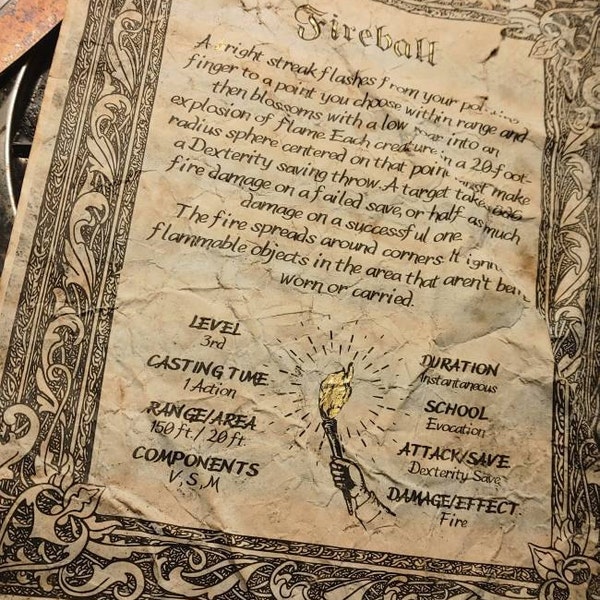 Fireball
A bright streak flashes from your pointing
finger to a point you choose within range and
then blossoms with a low roar into an
explosion of flame. Each creature in a 20-foot-
radius sphere centered on that point must make
a Dexterity saving throw. A target takes 8d6
fire damage on a failed save, or half as much
damage on a successful one.
The fire spreads around corners. It ignites
flammable objects in the area that aren't being
worn or carried.
LEVEL
3rd
CASTING TIME
1 Action
RANGE/AREA
150 ft. / 20 ft
COMPONENTS
V, S, M
DURATION
Instantaneous
SCHOOL
Evocation
ATTACK/SAVE
Dexterity Save
DAMAGE/EFFECT
Fire